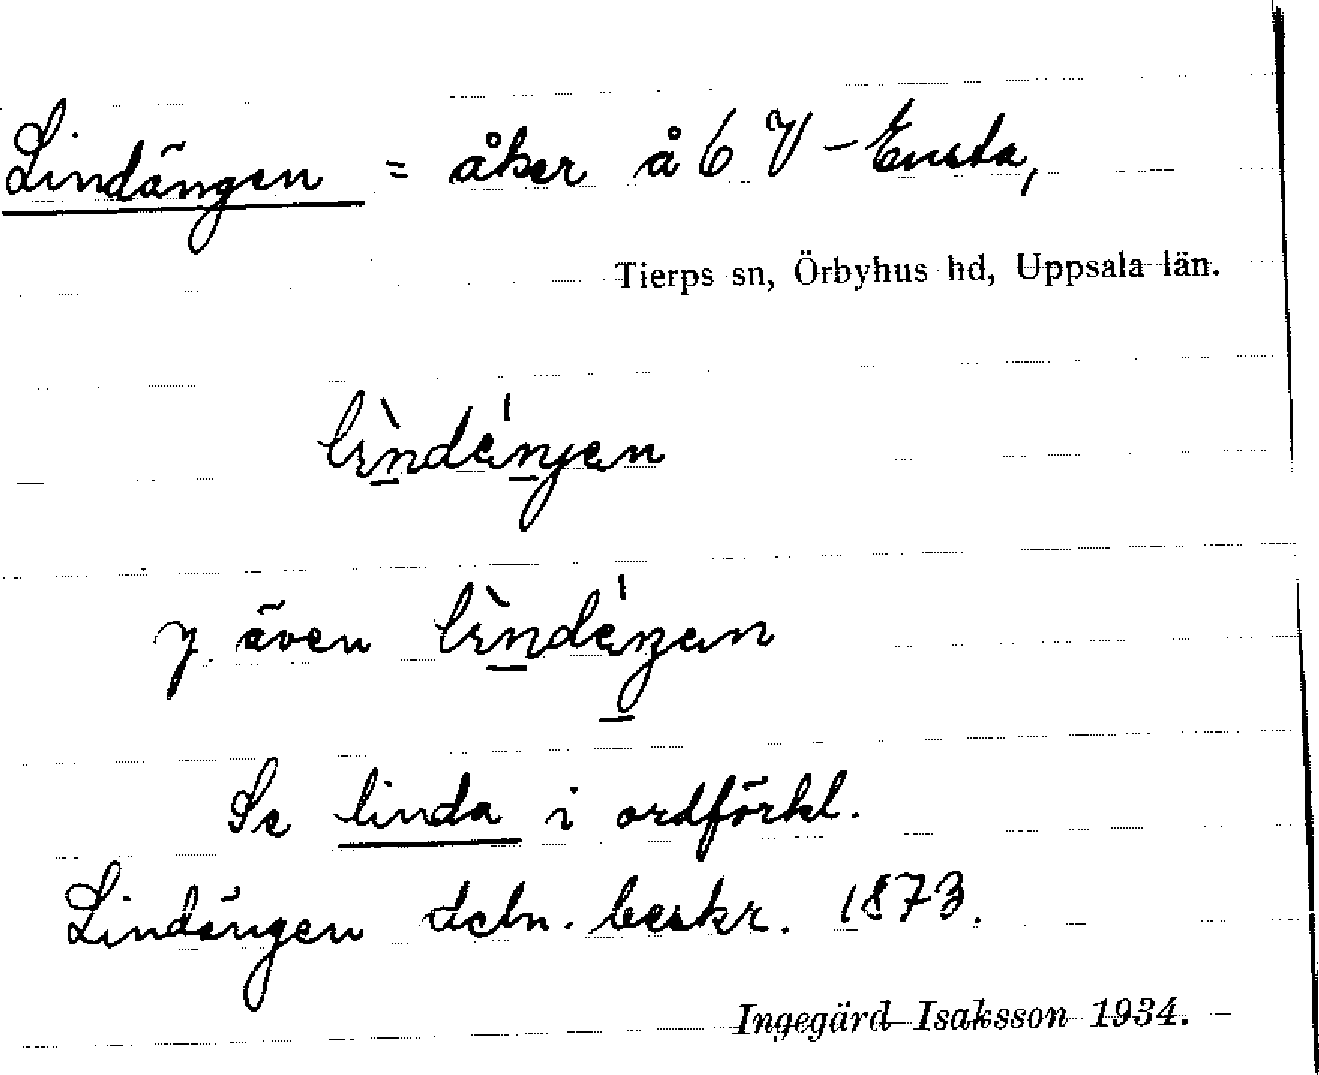 Lindängen = åker å 6 V - Ensta,
Tierps sn, Örbyhus hd, Uppsala län.
lìndä́njen
y. även
Se linda i ordförkl.
Lindängen deln. beskr. 1873.
Ingegärd Isaksson 1934.